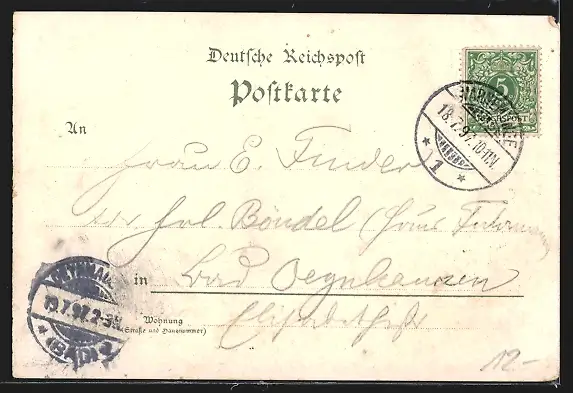 Deutsche Reichspost
Postkarte
5
REICHSPOST
18.7.97.10-11V.
* 1 *
An
Frau E. Finder
Frl. Böndel (Haus Fuhrmann
in Bad Oeynhausen
Wohnung
(Straße und Hausnummer)
Elisabethstr.
19.7.97.2-3N
(BAD)
12.-